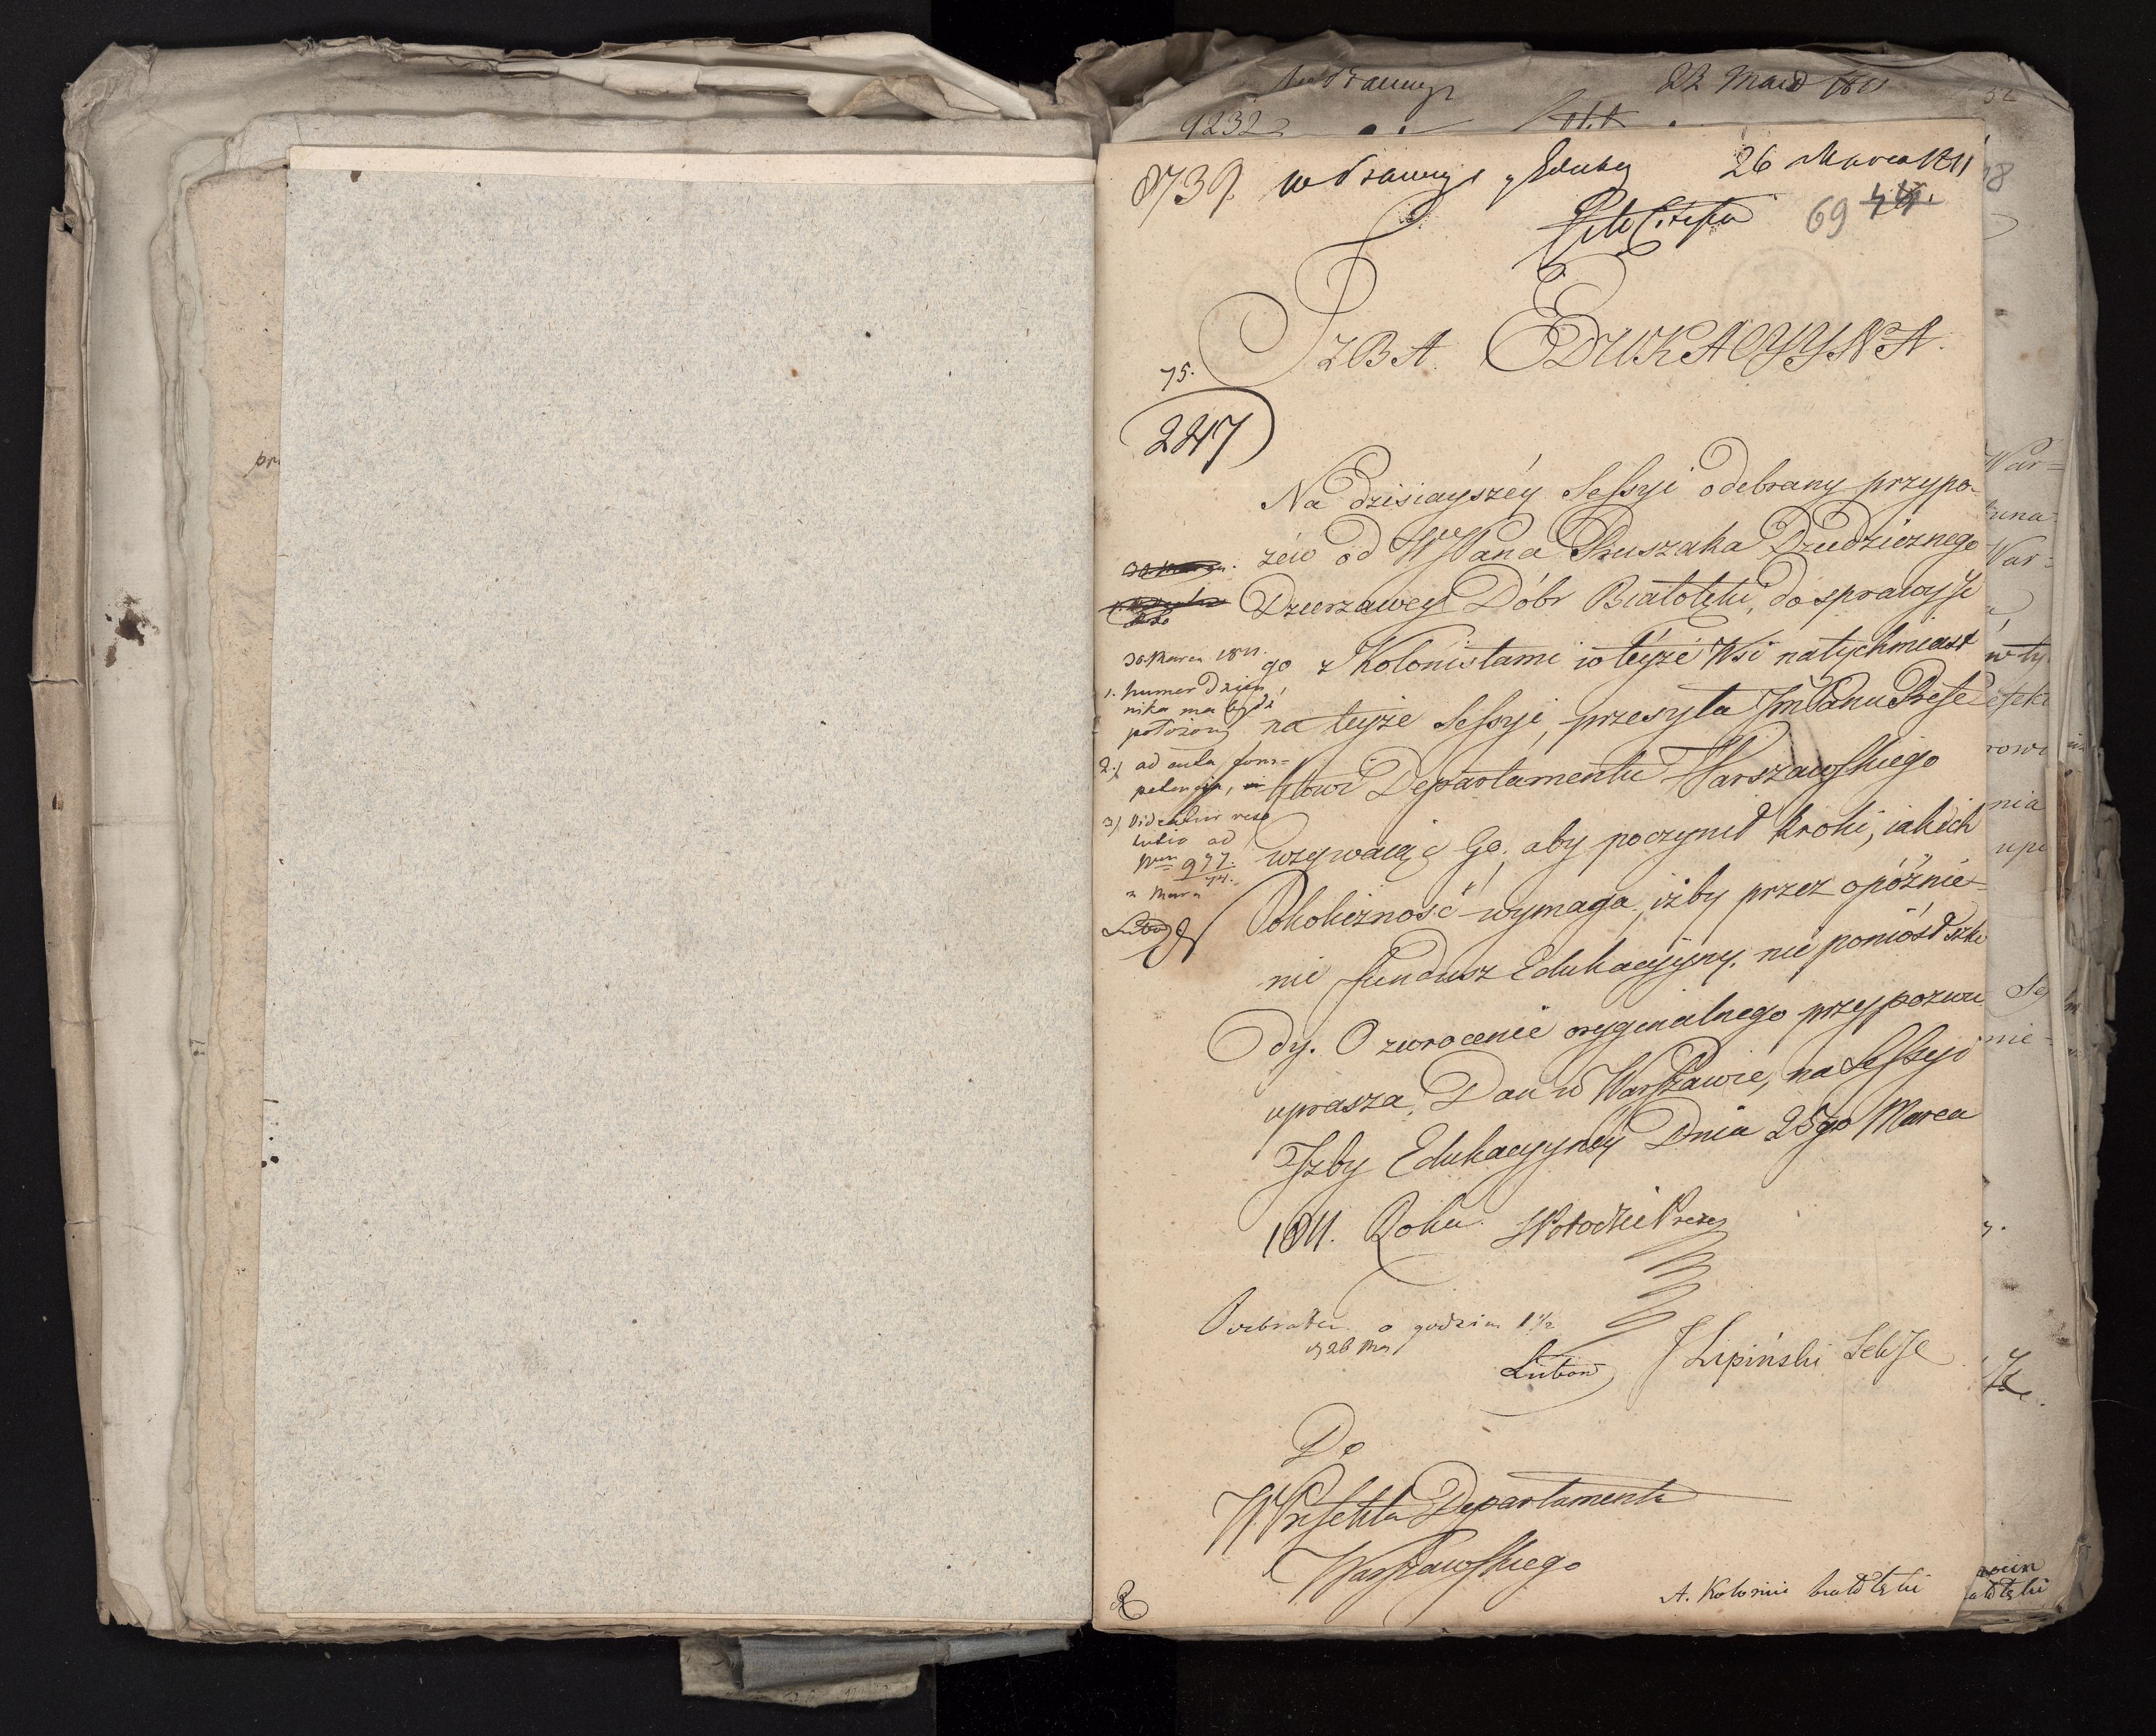 22 Marca 1811
9232
8739. 26 Marca 1811
69 44.
IZBA EDUKACYYNA.
75.
247
Na dzisiayszéy Sessyi odebrany przypo-
zew od WPana Dziedzicznego
Dzierzawcy Dóbr Białołęki, do sprawy Je
go z Kolonistami w téyże Wsi natychmiast
na teyże Sessyi, przesyła JmPanu Prefe
ktowi Departamentu Warszawskiego
wzywaiąc Go, aby poczynił kroki, iakich
Okoliczność wymaga, iżby przez opóźnie-
nie fundusz Edukacyyny, nie poniósł szko
dy. O zwrocenie oryginalnego przypozwu
uprasza. Dan w Warszawie, na Sessyi
Izby Edukacyyney Dnia 25go Marca
1811. Roku.
30. Marca 1811.
1. Numer Dzien
nika ma bydź
położony
2.) ad acta
3.) Videatur reso
lutio ad
Num 977.
Odebrałem o godzin 1 1/2
d 26 Mar
Luboń
J Lipiński Sek Je
Do
W Prefekta Departamentu
Warszawskiego
A. Kolonie białołęki